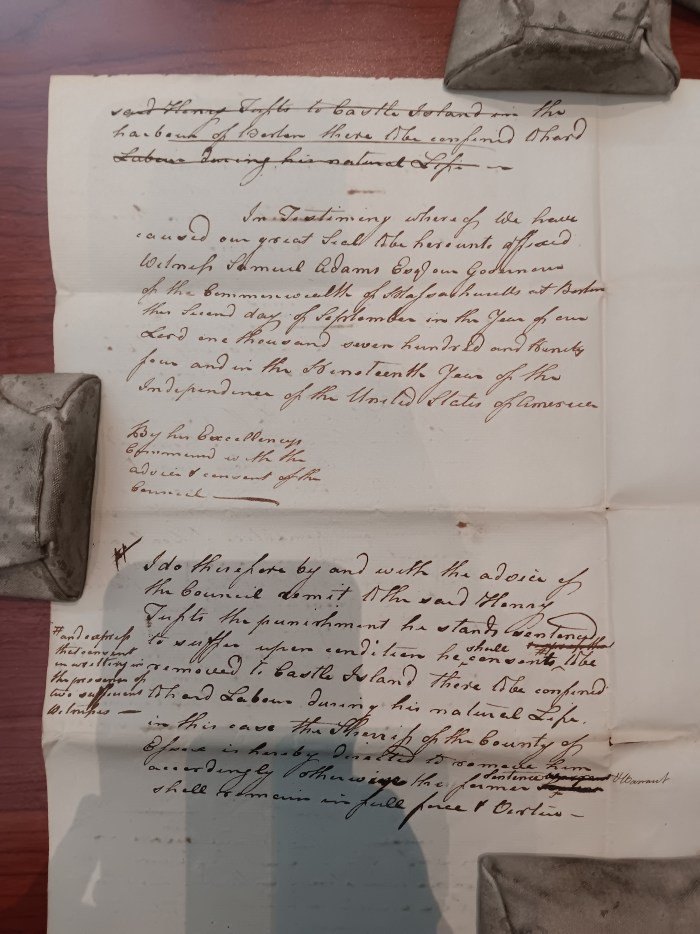 said Henry Tufts to Castle Island in the
harbour of Boston there to be confined to hard
Labour during his natural Life —
In Testimony whereof We have
caused our great Seal to be hereunto affixed
Witness Samuel Adams Esqr our Governour
of the Commonwealth of Massachusetts at Boston
this Second day of September in the Year of our
Lord one thousand seven hundred and Ninety
four and in the Nineteenth Year of the
Independence of the United States of America
By his Excellencys
Command with the
advice & consent of the
Council —
#
I do therefore by and with the advice of
the Council remit to the said Henry
Tufts the punishment he stands sentenced
to suffer upon condition he shall consent # to be
removed to Castle Island there to be confined
to hard Labour during his natural Life.
in this case the Sheriff of the County of
Essex is hereby directed to remove him
accordingly otherwise the former Sentence & Warrant
shall remain in full force & Virtue —
# and express
that consent
in writting in
the presence of
two sufficient
Witnesses —